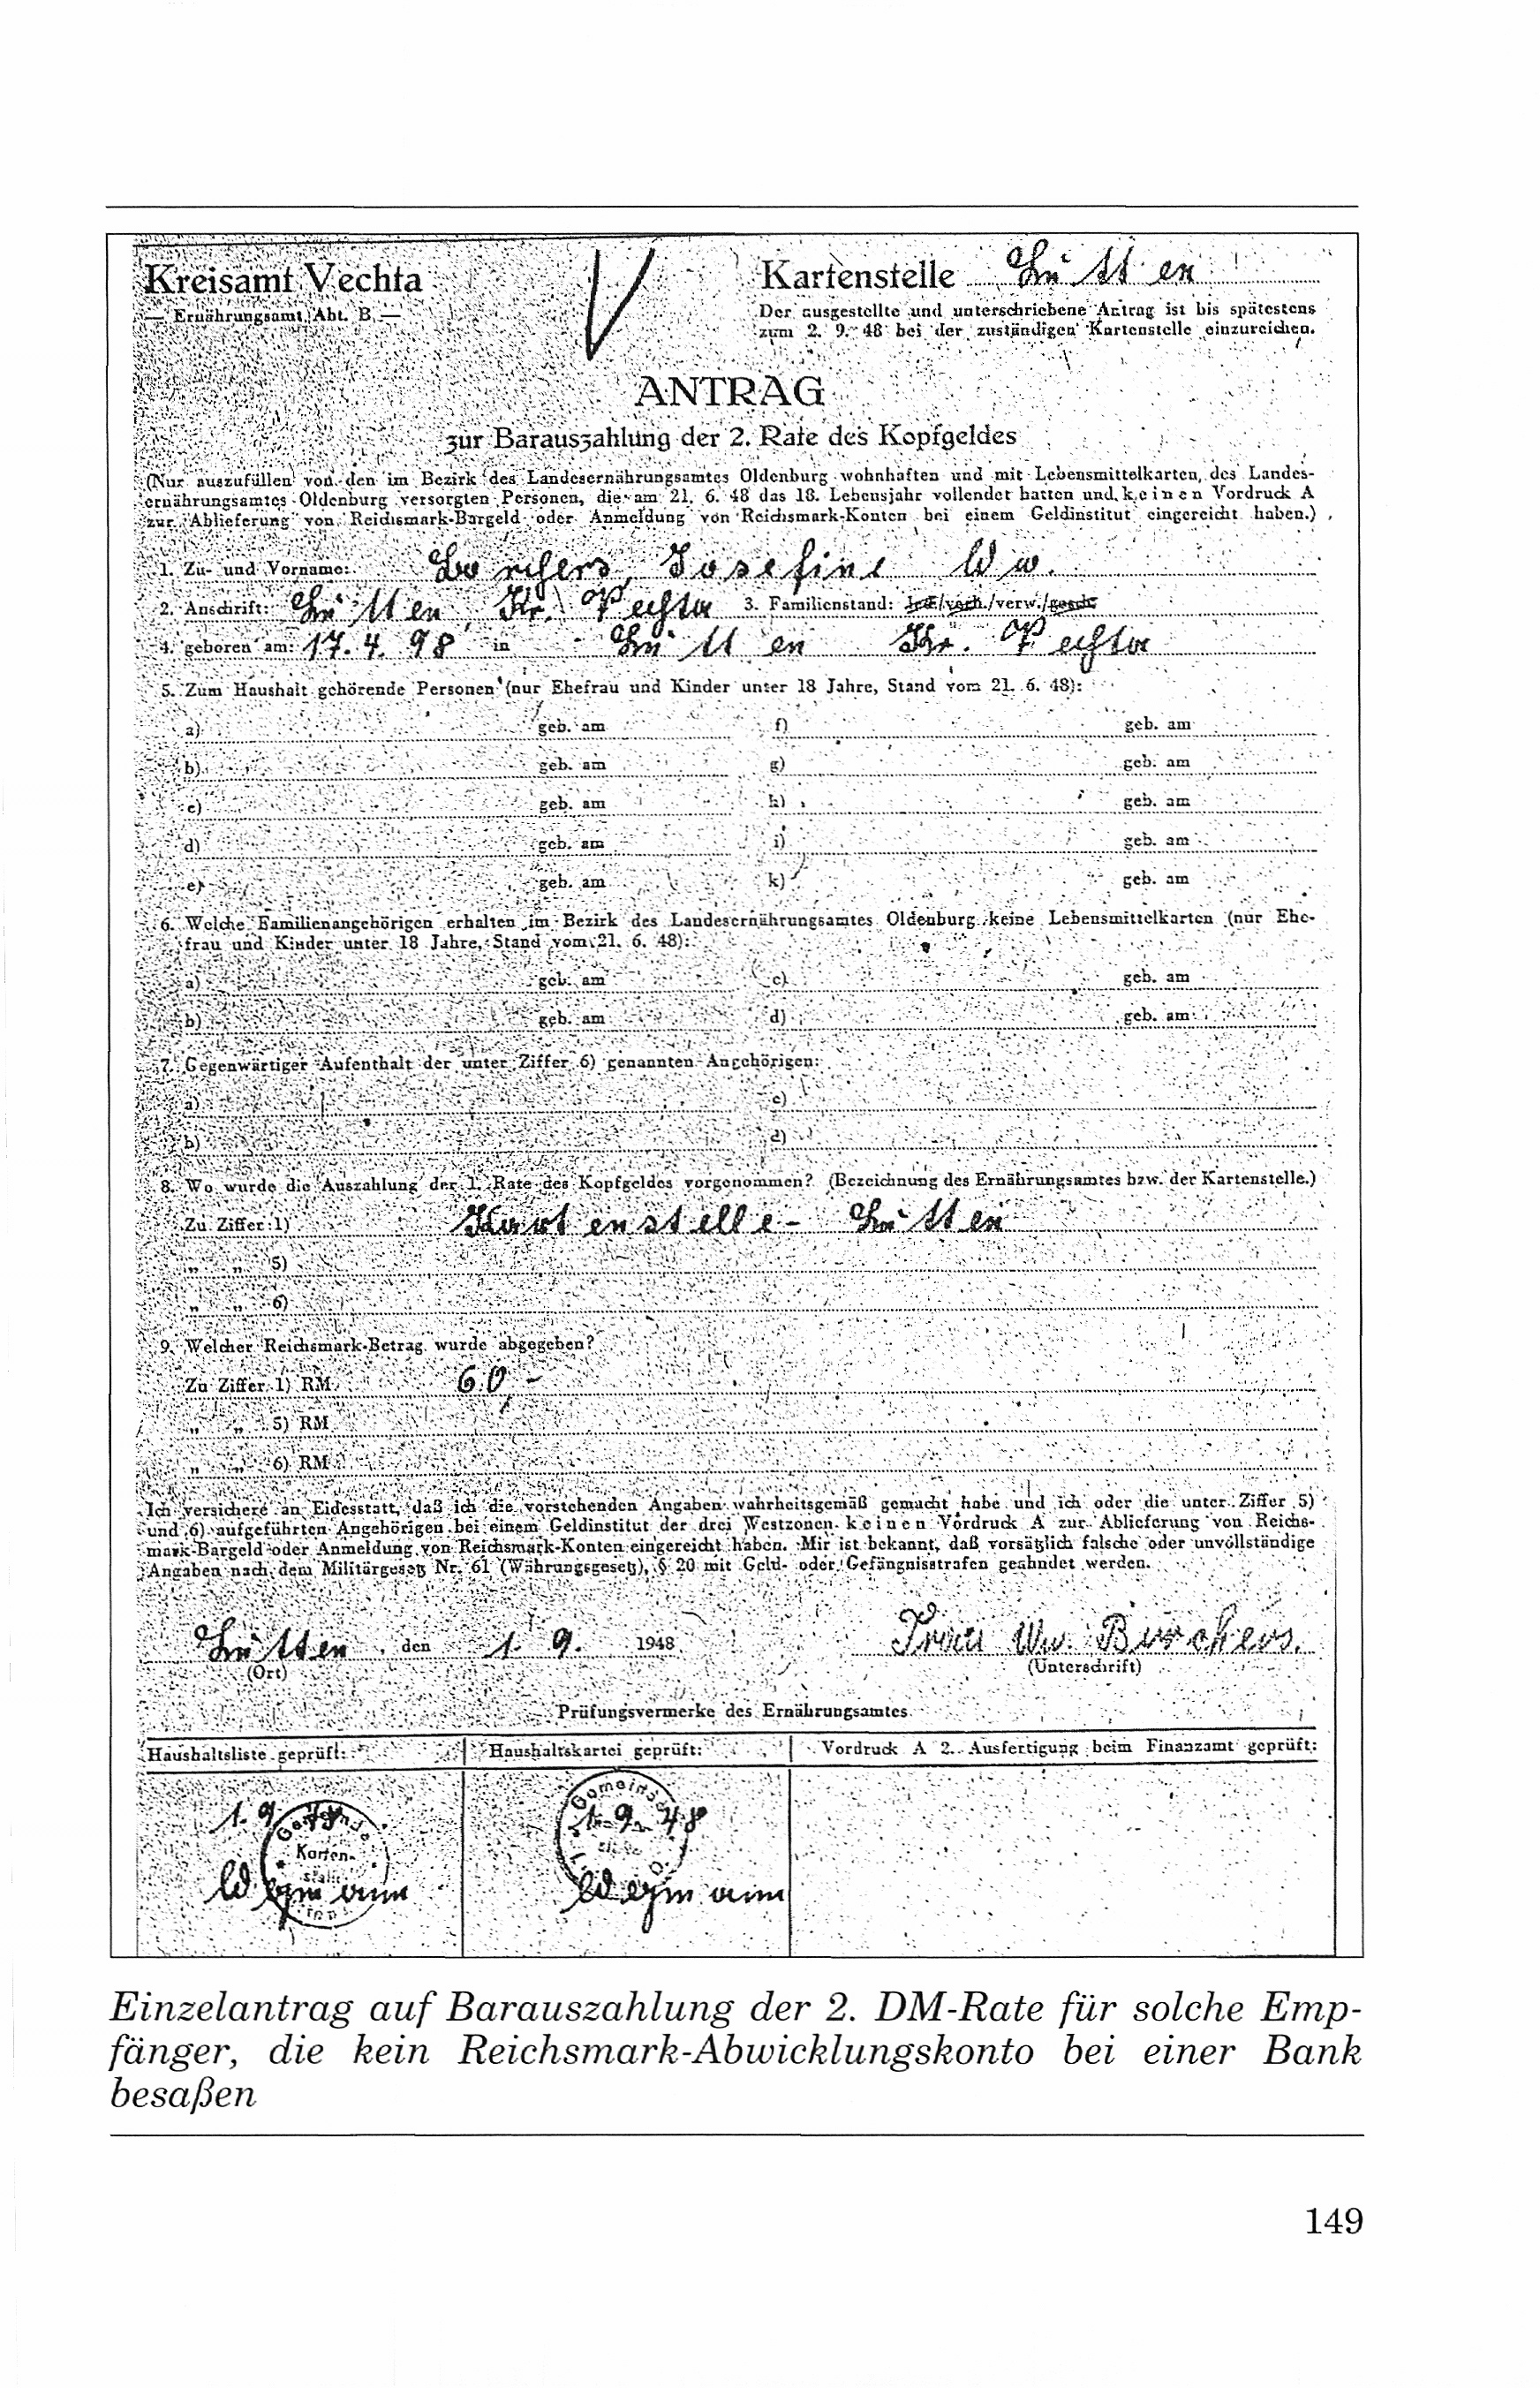 Kreisamt Vechta
— Ernährungsamt, Abt. B. —
Kartenstelle Lutten
Der ausgestellte und unterschriebene Antrag ist bis spätestens
zum 2. 9. 48 bei der zuständigen Kartenstelle einzureichen.
ANTRAG
zur Barauszahlung der 2. Rate des Kopfgeldes
(Nur auszufüllen von den im Bezirk des Landesernährungsamtes Oldenburg wohnhaften und mit Lebensmittelkarten des Landes-
ernährungsamtes Oldenburg versorgten Personen, die am 21. 6. 48 das 18. Lebensjahr vollendet hatten und keinen Vordruck A
zur Ablieferung von Reichsmark-Bargeld oder Anmeldung von Reichsmark-Konten bei einem Geldinstitut eingereicht haben.)
1. Zu- und Vorname: Borchers, Josefine Ww.
2. Anschrift: Lutten, Kr. Vechta 3. Familienstand: led./verh./verw./gesch.
4. geboren am: 17. 4. 98 in Lutten Kr. Vechta
5. Zum Haushalt gehörende Personen (nur Ehefrau und Kinder unter 18 Jahre, Stand vom 21. 6. 48):
a) geb. am f) geb. am
b) geb. am g) geb. am
c) geb. am h) geb. am
d) geb. am i) geb. am
e) geb. am k) geb. am
6. Welche Familienangehörigen erhalten im Bezirk des Landesernährungsamtes Oldenburg keine Lebensmittelkarten (nur Ehe-
frau und Kinder unter 18 Jahre, Stand vom 21. 6. 48):
a) geb. am c) geb. am
b) geb. am d) geb. am
7. Gegenwärtiger Aufenthalt der unter Ziffer 6) genannten Angehörigen:
a) c)
b) d)
8. Wo wurde die Auszahlung der 1. Rate des Kopfgeldes vorgenommen? (Bezeichnung des Ernährungsamtes bzw. der Kartenstelle.)
Zu Ziffer 1) Kartenstelle - Lutten
„ „ 5)
„ „ 6)
9. Welcher Reichsmark-Betrag wurde abgegeben?
Zu Ziffer 1) RM 60,-
„ „ 5) RM
„ „ 6) RM
Ich versichere an Eidesstatt, daß ich die vorstehenden Angaben wahrheitsgemäß gemacht habe und ich oder die unter Ziffer 5)
und 6) aufgeführten Angehörigen bei einem Geldinstitut der drei Westzonen keinen Vordruck A zur Ablieferung von Reichs-
mark-Bargeld oder Anmeldung von Reichsmark-Konten eingereicht haben. Mir ist bekannt, daß vorsätzlich falsche oder unvollständige
Angaben nach dem Militärgesetz Nr. 61 (Währungsgesetz), § 20 mit Geld- oder Gefängnisstrafen geahndet werden.
Lutten, den 1. 9. 1948 Frau Ww. Borchers.
(Ort) (Unterschrift)
Prüfungsvermerke des Ernährungsamtes
Haushaltsliste geprüft: Haushaltskartei geprüft: Vordruck A 2. Ausfertigung beim Finanzamt geprüft:
1. 9. 48 1. 9. 48
Gemeinde
Karten-
stelle
Einzelantrag auf Barauszahlung der 2. DM-Rate für solche Emp-
fänger, die kein Reichsmark-Abwicklungskonto bei einer Bank
besaßen
149